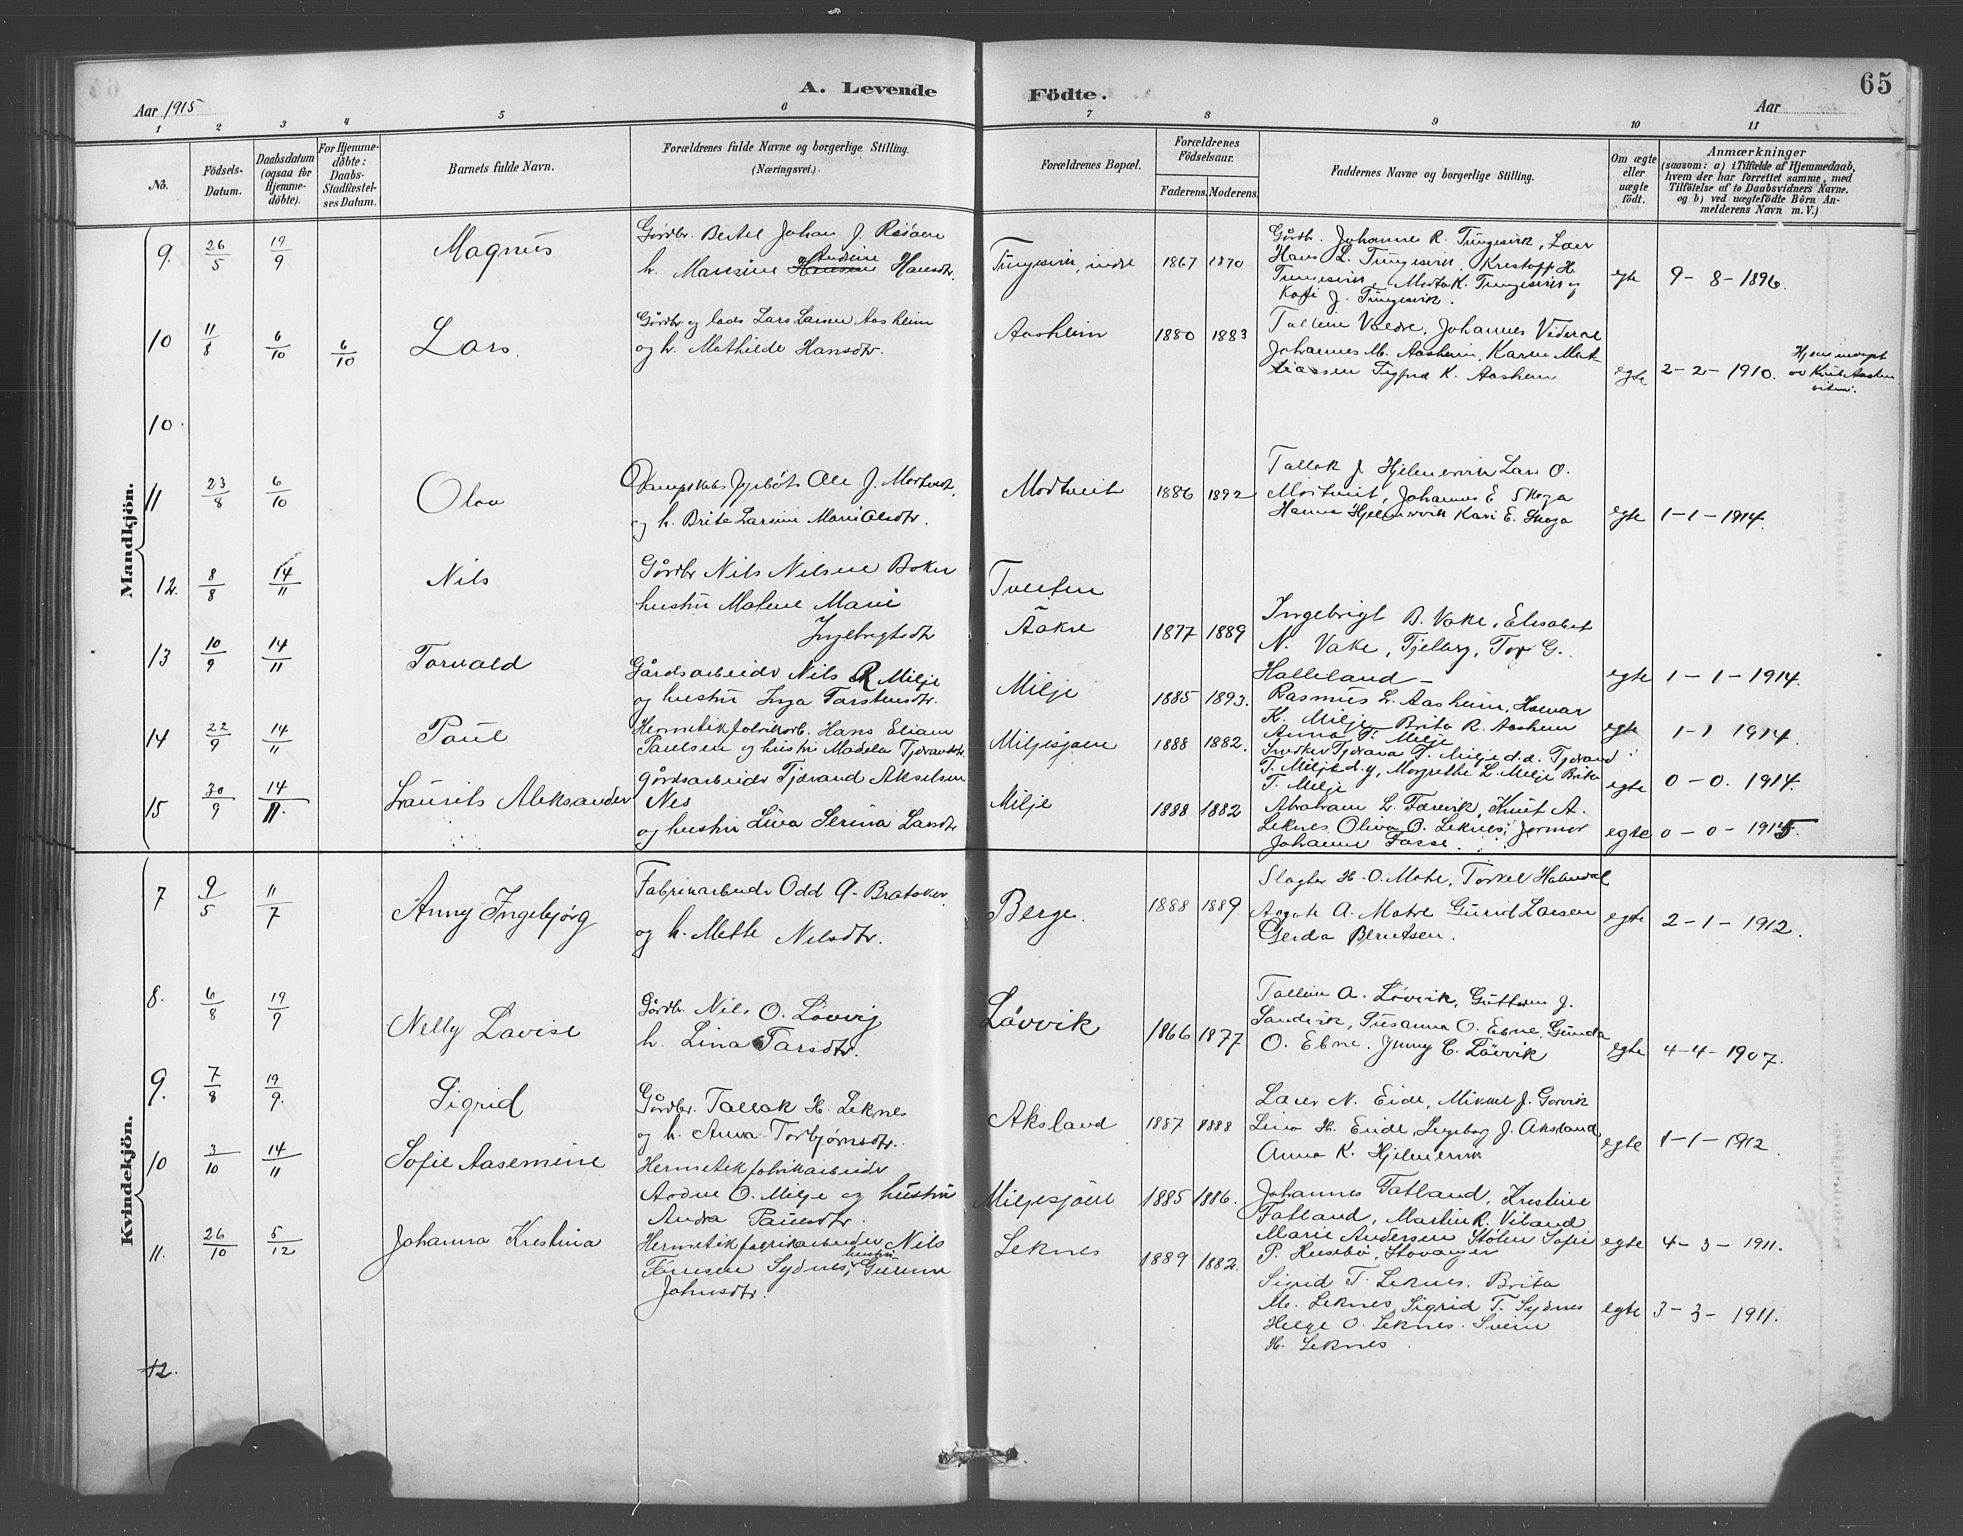 65
A. Levende Födte.
Aar 1915
Aar
1 2 3 4 5 6 7 8 9 10 11
No.
Födsels-Datum.
Daabsdatum (ogsaa for Hjemme-döbte).
For Hjemme-döbte: Daabs-Stadfæstel-ses Datum.
Barnets fulde Navn.
Forældrenes fulde Navne og borgerlige Stilling.
(Næringsvei.)
Forældrenes Bopæl.
Forældrenes Födselsaar.
Faderens. Moderens.
Faddernes Navne og borgerlige Stilling.
Om ægte eller uægte födt.
Anmærkninger
(saasom: a) i Tilfælde af Hjemmedaab,
hvem der har forrettet samme, med
Tilföielse af to Daabsvidners Navne.
og b) ved uægtefödte Börn An-
melderens Navn m. V.)
Mandkjön.
9. 26/5 19/9 Magnus
Gårdbr. Bertel Johan J.
h. Marsine Andrine Hansdtr.
Tungesvik, indre 1867 1870
Gårdb. Johanne R. Tungesvik, Lars
Hans L. Tungesvik, Kristoff H.
Tungesvik, Marta K. Tungesvik og
Kari J. Tungesvik.
egte 9-8-1896.
10 11/8 6/10 6/10 Lars.
Gårdbr og lods Lars Larsen Aasheim
og h. Mathilde Hansdtr.
Aasheim 1880 1883
Valdre, Johannes
Johannes M. Aasheim, Karen Mat-
tiassen K. Aasheim
egte 2-2-1910.
10.
11 23/8 6/10 Olav
Ole J. Mortveit,
og h. Brite Larsine Marie Olsdtr.
Mortveit 1886 1892
Tallak J. Hjelmervik Lars O.
Mortveit, Johannes E Skoga
Hanna Hjelmervik Kari E. Skoga
egte 1-1-1914.
12. 8/8 14/11 Nils
Gårdbr Nils Nilsen
hustru Malene Marie
Ingebrigtsdtr
Tveiten
Aakre 1877 1889
Ingebrigt B. Vake, Elisabet
N. Vake, Fjelberg, Tor G.
Halleland —
egte 1-1-1914.
13 10/9 14/11 Torvald
Gårdsarbeider Nils R Milje
og hustru Inga Torstensdtr.
Milje 1885 1893.
Rasmus L. Aasheim, Halvar
K. Milje Brita R. Aasheim
Anna T. Milje
egte 1-1 1914.
14 22/9 14/11 Paul
Hermetikfabrikarb. Hans Eliam
Paulsen og hustru Madela Tjerandsdtr.
Miljesjøen 1888 1882.
Snedker Tjerand T. Milje d.e. Tjerand
T. Milje d.y, Margrethe L. Milje Brita
T. Milje
egte 0-0. 1914.
15 30/9 14/11. Laurits Aleksander
gårdsarbeider Tjerand Akselsen
Nes
og hustru Lina Serina Larsdtr
Milje 1888 1882
Abraham L. Færevik, Knut A.
Leknes, Oliva O. Leknes, jormor
Johanne Fosse.
egte 0-0-1915.
Kvindekjön.
7 9/5 11/7 Anny Ingebjørg
Fabrikarbeider Odd A.
og h. Mette Nilsdtr.
Berge. 1888 1889.
Slagter H. O. Matre, Torkel
Aagate A. Matre Gurid Larsen
Gerda Berntsen.
egte 2-1-1912.
8. 6/8 19/9 Nelly Lavise
Gårdbr. Nils O. Løvvig
h. Lina Larsdtr.
Løvvik 1866 1877
A. Løvvik, Guttorm J.
Sandvik, Susanna O. Ebne, Gunda
O. Ebne, Jenny C. Løvvik
egte 4-4-1907.
9. 7/8 19/9. Sigrid
Gårdbr. Tallak H. Leknes
og h. Anna Torbjørnsdtr.
Aksland 1887 1888
Lars N. Eide, Mikkel J. Gjervik
Lina H. Eide, Ingeborg J. Aksland
Anna K. Hjelmervik
egte 1-1-1912.
10 3/10 14/11 Sofie Aasemine
Hermetikfabrikarbeider
Andre O. Milje og hustru
Andrea Paulsdtr.
Miljesjøen 1885 1886.
Johannes Tatland, Kristine
Fatland, Martin R. Viland
Marie Andersen Stølen Sofie
P. Husebø, Stavanger
egte 4-3-1911.
11. 26/10 5/12 Johanna Kristina
Hermetikfabrikarbeider Nils
Sydnes, hustru
Johnsdtr.
Leknes 1889 1882.
Sigrid T. Leknes. Brita
M. Leknes, Sigrid T. Sydnes
Helge O. Leknes. Svein
H. Leknes.
egte 3-3-1911.
12.